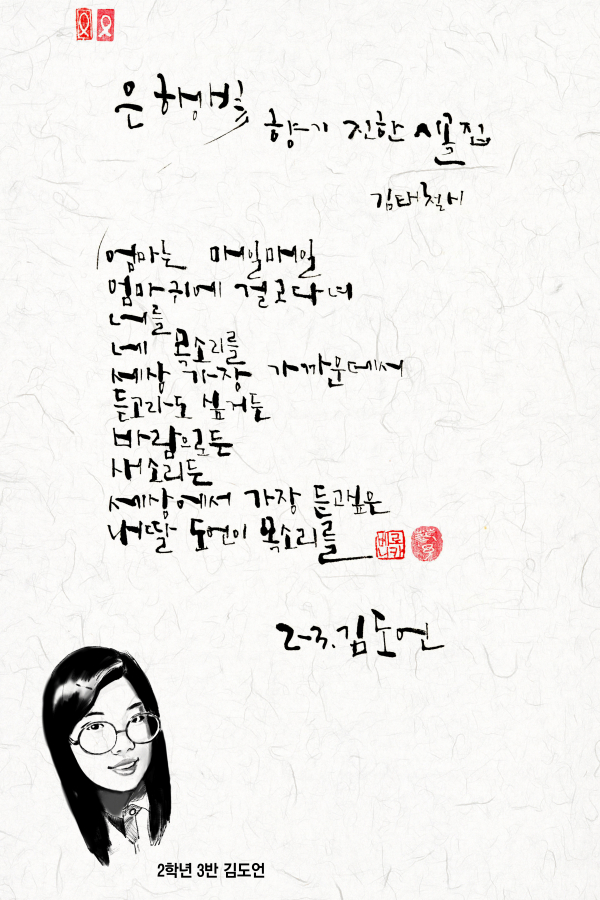 은햇빛
향기 진한 시골집
김태철 시
엄마는 매일매일
엄마 귀에 걸고 다녀
너를
네 목소리를
세상 가장 가까운데서
듣고라도 싶거든
바람으로든
새소리든
세상에서 가장 듣고싶은
내딸 도언이 목소리를
2-3. 김도언
2학년 3반 김도언